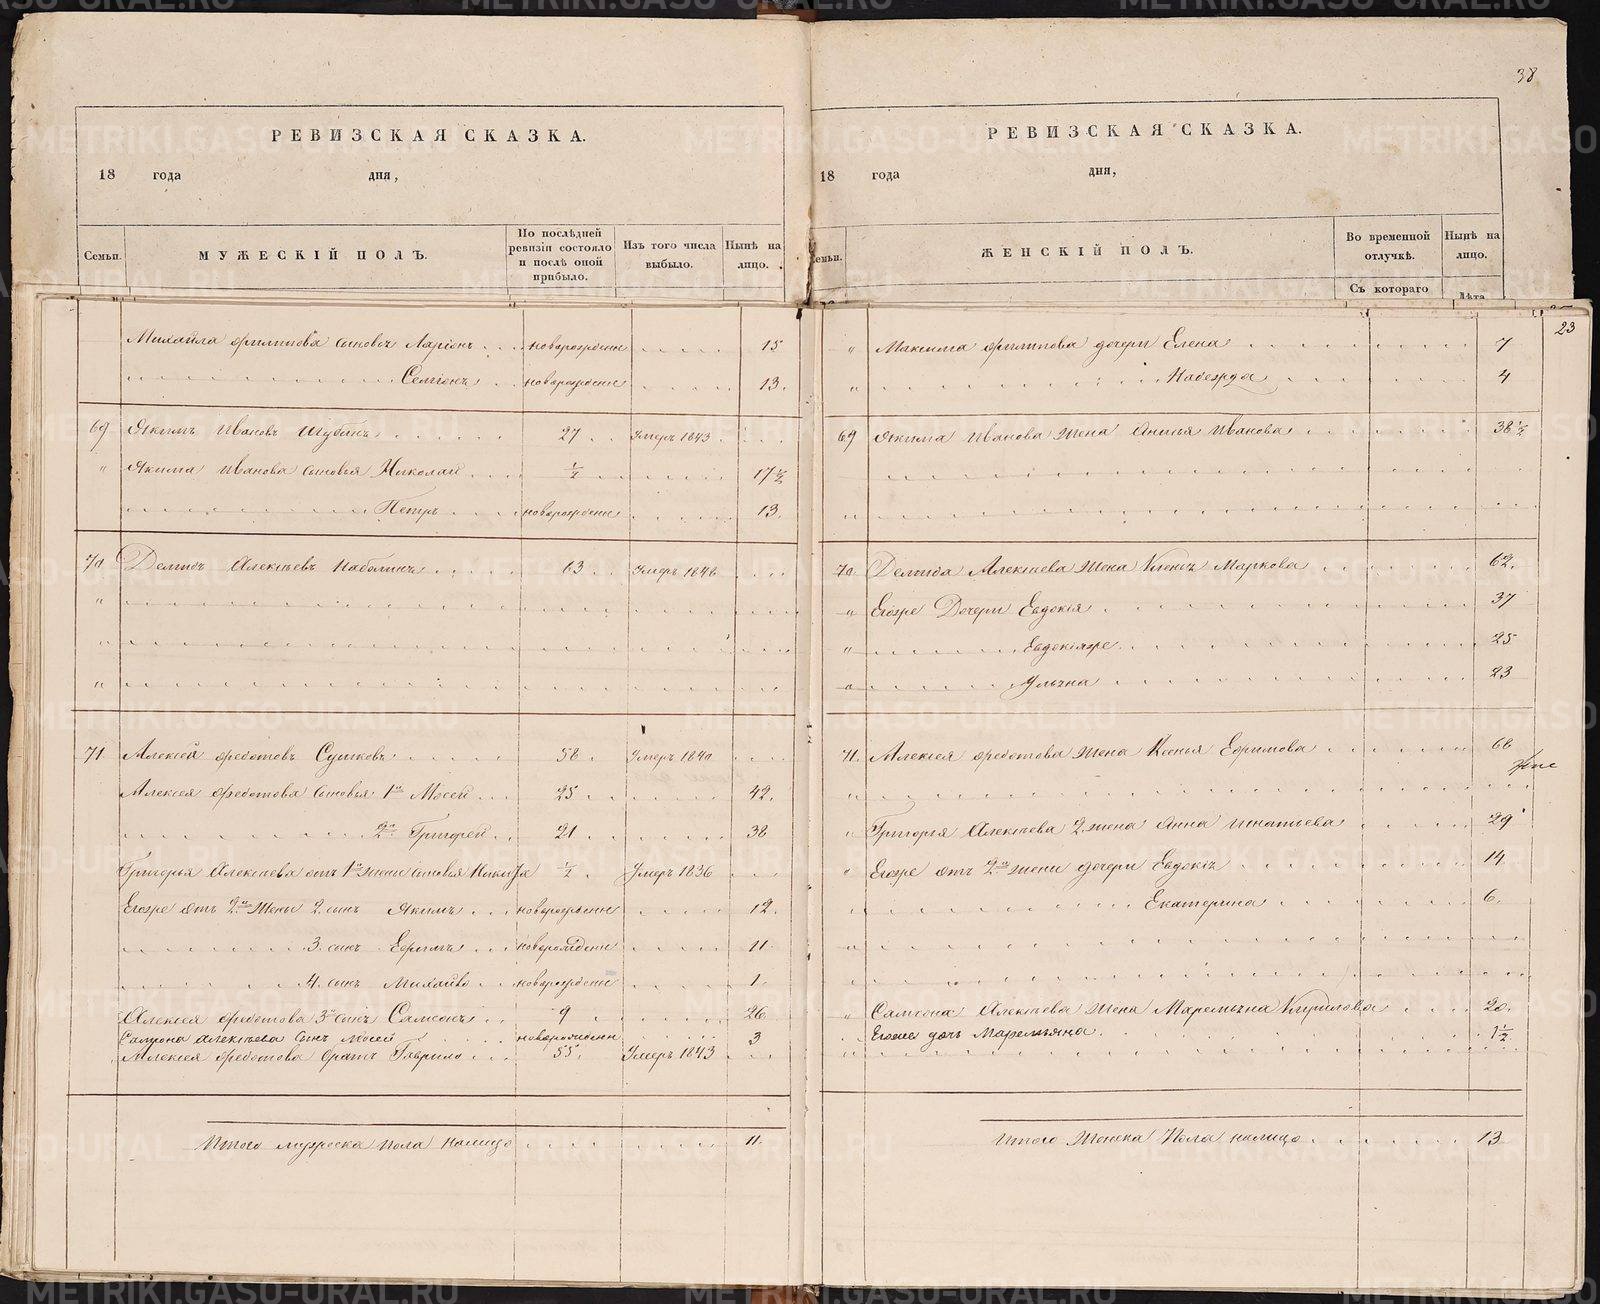 38
РЕВИЗСКАЯ СКАЗКА.
18 года дня,
Семьи.
МУЖЕСКІЙ ПОЛЪ.
По послѣдней ревизіи состояло и послѣ оной прибыло.
Изъ того числа выбыло.
Нынѣ на лицо.
Михайла Филипова сыновья Ларіонъ новорожденн 15
Семіонъ новорожденн 13.
69 Якимъ Ивановъ Шубинъ 27 Умеръ 1843
" Якима Иванова сыновья Николай ½ 17½
Петръ новорожденн 13.
70 Демидъ Алексѣевъ 63 Умеръ 1846
"
"
"
71 Алексѣй Федотовъ Сушковъ 58. Умеръ 1840
Алексея Федотова сыновья 1й Мосей 25 42.
2й Григорей 21 38
Григорья Алексѣева отъ 1й жены сыновья Никита ½ Умеръ 1836
Егоже отъ 2й жены 2. сынъ Якимъ новорожденн 12.
3. сынъ Ефимъ новорожденн 11
4. сынъ Михайло новорожденн 1.
Алексея Федотова 3й сынъ Самсонъ 9 26
Самсона Алексѣева сынъ Мосей новорожденн 3
Алексея Федотова братъ Гаврило 55. Умеръ 1843
Итого мужеска пола налицо 11.
РЕВИЗСКАЯ СКАЗКА.
18 года дня,
Семьи.
ЖЕНСКІЙ ПОЛЪ.
Во временной отлучкѣ.
Нынѣ на лицо.
Съ котораго
Лѣта
23
" Максима Филипова дочери Елена 7
" Надежда 4
69 Якима Иванова жена Анисья Иванова 38½
"
"
70. Демида Алексѣева жена Маркова 62.
" Егоже дочери Евдокія 37
" 25
" Ульяна 23
71. Алексея Федотова жена Ксенья Ефимова 66
"
" Григорья Алексѣева 2. жена Анна Игнатьева 29
" Егоже отъ 2й жены дочери Евдокія 14
" Екатерина 6.
"
"
" Самсона Алексѣева жена Маремьяна Кирилова 20.
Егоже дочь Маремьяна 1½
"
Итого женска пола налицо 13
METRIKI.GASO-URAL.RU